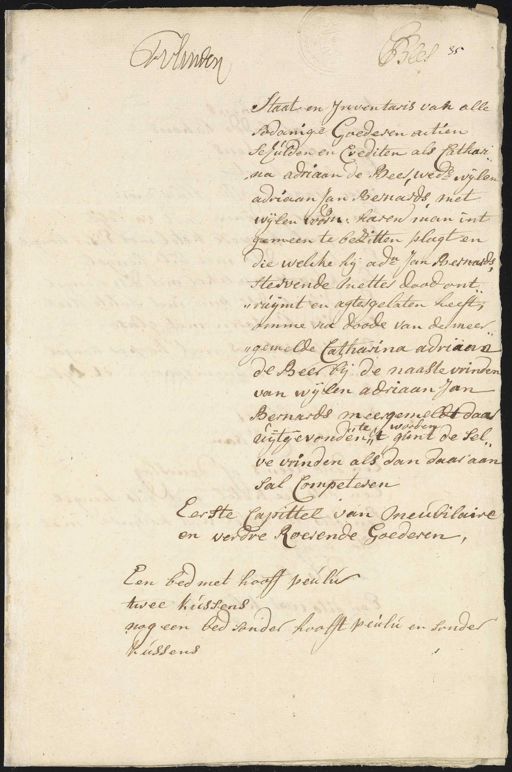 Bees 35
Staat en Inventaris van alle
sodanige Goederen actien
schulden en Crediten als Catha„
na adriaan de Bee, wed.e wijlen
adriaan Jan Bernards, met
wijlen voorn: haren man int
gemeen te besitten plagt en
die welke hij adr. Jan Bernards,
stervende metter dood ont„
„ruijmt en agtergelaten heeft,
omme na doode van de meer
„gemelde Catharina adriaan
de Beer bij de naaste vrinden
van wijlen adriaan Jan
Bernards meergemeldt daar
uijtgevonden te worden t gunt de sel„
ve vrinden als dan daar aan
sal Competeren
Eerste Capittel van Meubilaire
en verdre Roerende Goederen,
Een bed met hooft peuluw
twee kussens
nog een bed sonder hooft peulu en sonder
kussens